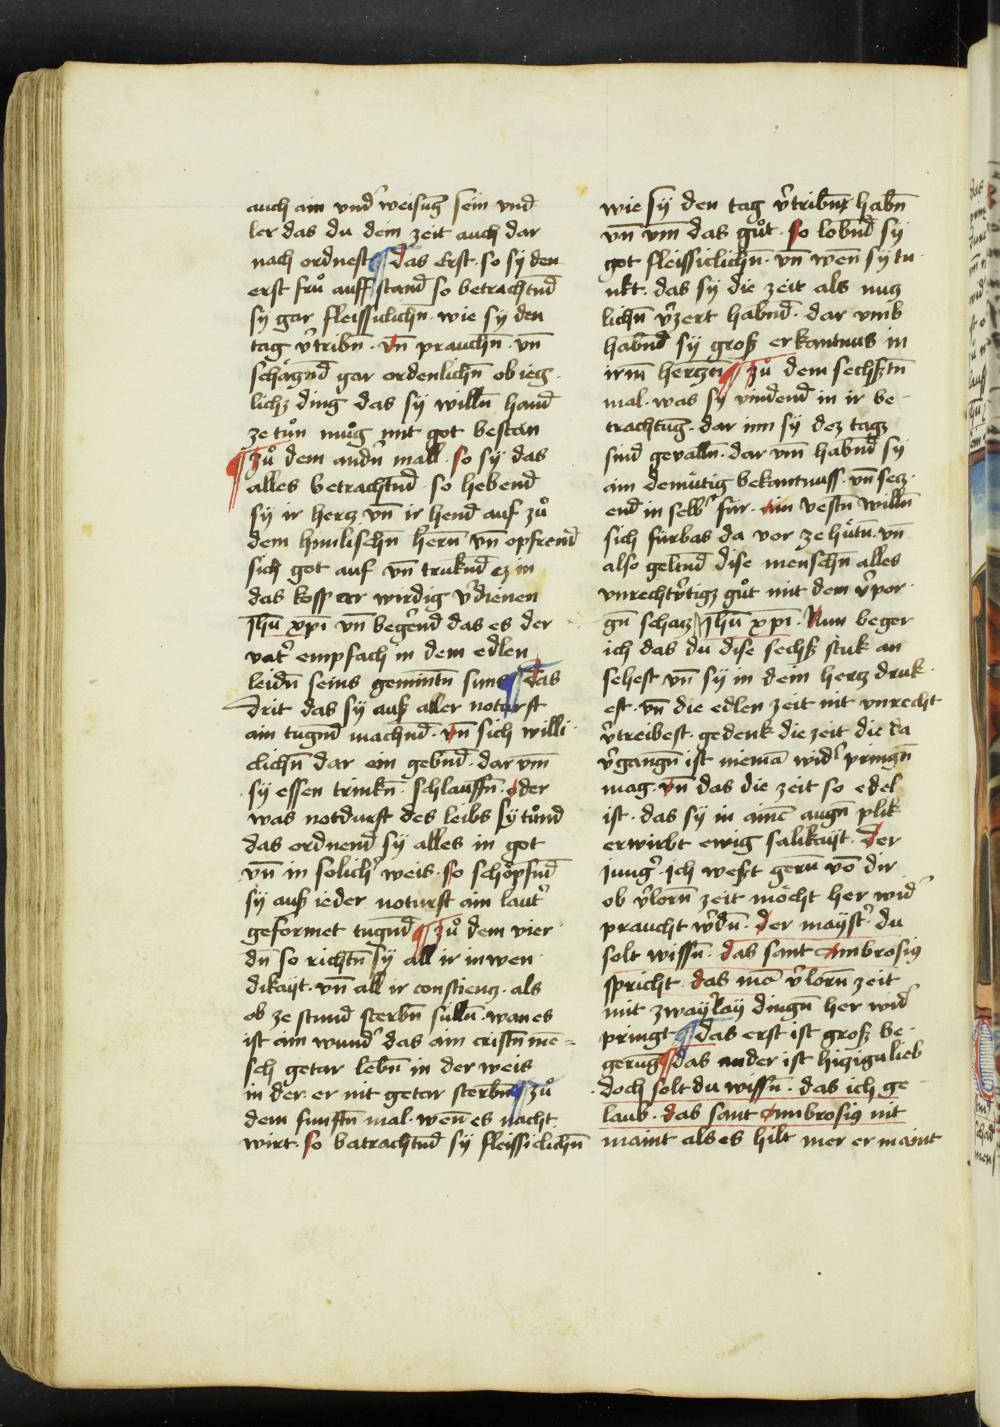 auch ain vnd͛ weisūg sein vnd
ler das du dein zeit auch dar
nach ordnest ¶ das Erst · so sy den
erst frů auff stand so betrachtnd
sy gar fleissiclichn̄ · wie sy den
tag v͛tribn̄ · vn̄ prauchn̄ · vn̄
schäcznd gar ordenlichn̄ ob ieg
lichz ding das sy willn̄ hand
ze tůn mug mit got bestan
¶ zů dem andn͛ mall · so sy das
alles betrachtnd · so hebend
sy ir hercz vn̄ ir hend auf zů
dem himlischn̄ hern̄ vn̄ opfrend
sich got auf vn̄ truknd ez in
das kosp er wirdig v͛dienen
Jhū xpī vn̄ begernd das es der
vat͛ empfach in dem edlen
leidn̄ seins gemintn̄ suns ¶ das
drit das sy auß aller noturft
ain tugnd machnd · vn̄ sich willi
clichn̄ dar ein gebnd · dar vm̄
sy essen trinkn̄ · schlauffn̄ · oder
was notdurft des leibs sy tůnd
das ordnend sy alles in got
vn̄ in solich͛ weis · so schöpfnd
sy auß ieder noturft ain laut͛
geformet tugnd ¶ zů dem vier
dn̄ so richtn̄ sy all ir inwen
dikayt · vn̄ all ir conscienz · als
ob ze stund sterbn̄ sulln̄ · wan es
ist ain wund͛ das ain cristn̄ mē =
sch getar lebn̄ in der weis
in der er nit getar sterbn̄ ¶ zů
dem funftn̄ mal · wen̄ es nacht
wirt · so batrachtnd sy fleissiclichn̄
wie sy den tag v͛tribn̄ habn̄
vn̄ vm̄ das gůt · so lobnd sy
got fleissiclichn̄ · vn̄ wen̄ sy tu
nkt · das sy die zeit als nucz
lichn̄ v͛zert habnd · dar vmb
habnd sy groß erkantnus in
irm̄ herczn̄ ¶ zů dem sechstn̄
mal · was sy vindend in ir be
trachtūg · dar inn sy dez tagz
sind gevalln̄ · dar vm̄ habnd sy
ain demütig bekantnuss · vn̄ secz
end in selb͛ für · ain vestn̄ willn̄
sich fürbas da vor ze hütn̄ · vn̄
also geltnd dise menschn̄ alles
vnrechtv͛tigz gůt mit dem v͛por
gn̄ schacz Jhū xpī · Nun beger
ich das du dise sechs stuk an
sehest vn̄ sy in dein hercz druk
est · vn̄ die edlen zeit nit vnrecht
v͛treibest · gedenk die zeit die da
v͛gangn̄ ist niemā wid͛ pringn̄
mag · vn̄ das die zeit so edel
ist · das sy in ainē augn̄ plik
erwirbt ewig salikayt · Der
jung͛ · ich west gern̄ vō dir
ob v͛lorn̄ zeit möcht her wid͛
praucht w͛dn̄ · der mayst͛ · du
solt wissn̄ · das sant Ambrosiꝰ
spricht · das mā v͛lorn̄ zeit
mit zway͛lay dingn̄ her wid͛
pringt ¶ das erst ist groß be
gerūg ¶ das ander ist hizigu lieb
doch solt du wissn̄ · das ich ge
laub · das sant Ambrosiꝰ nit
maint als es hilt mer er maint